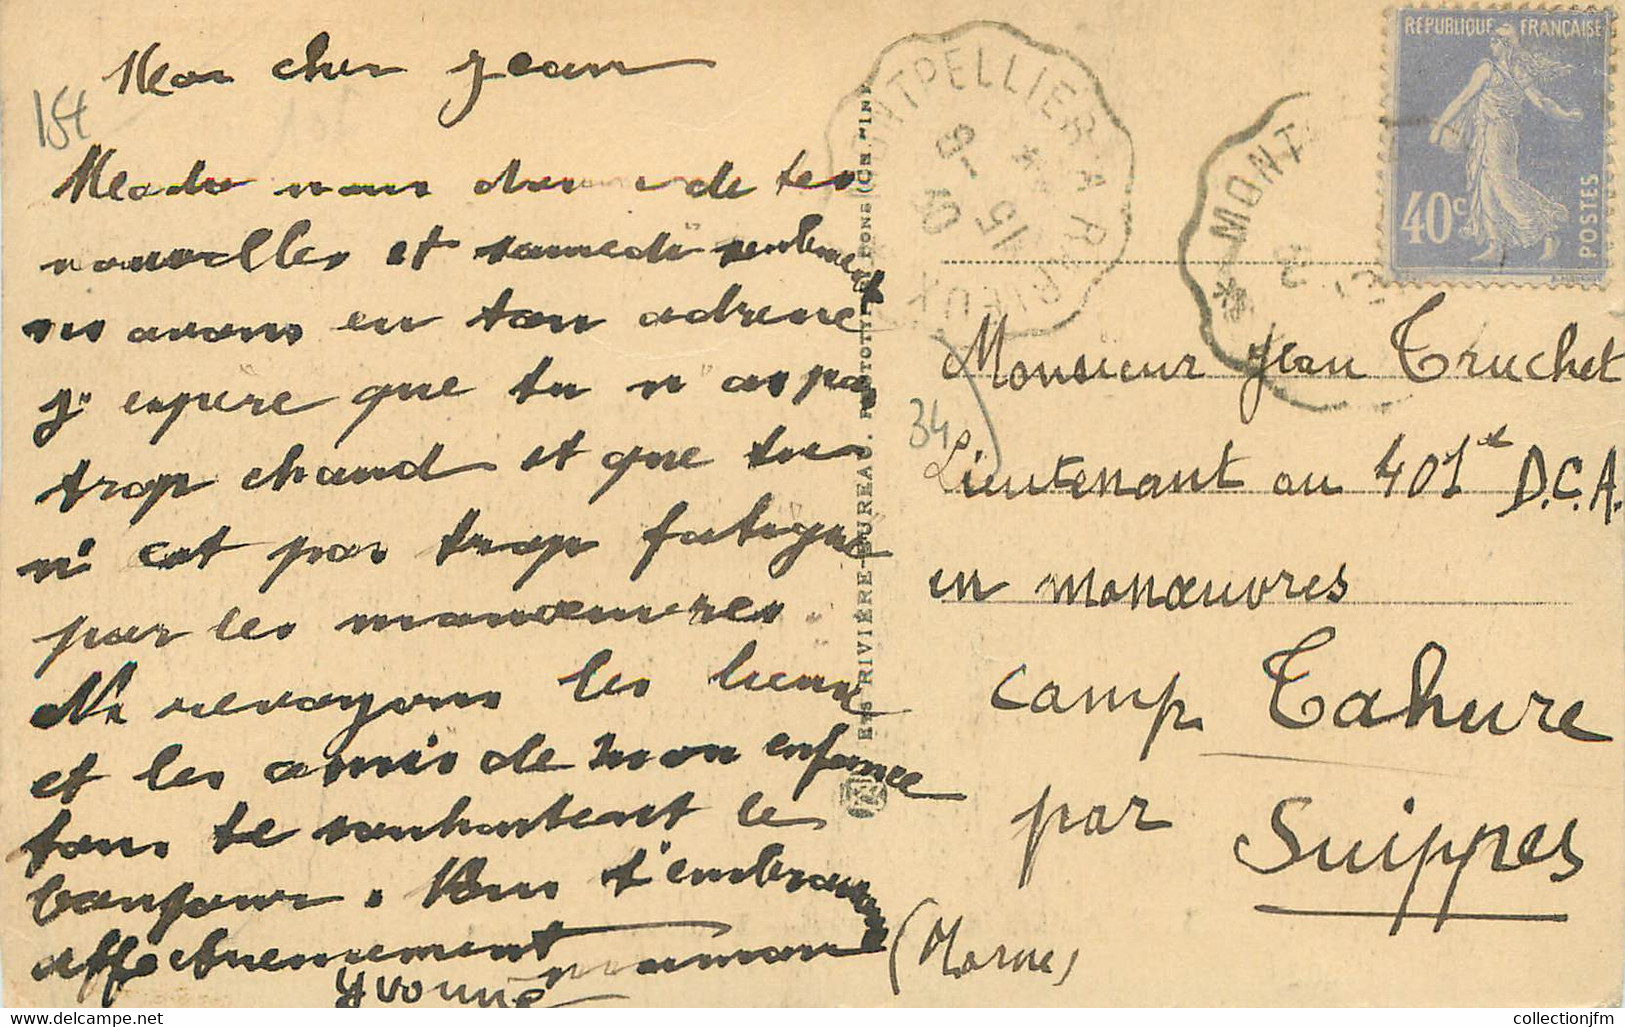 Mon cher Jean
184
Mado nous donne de tes
nouvelles et samedi seulement
ns avons eu ton adresse
j'espère que tu n as pas
trop chaud et que tu
n'est pas trop fatigué
par les manœuvres
Ns revoyons les lieux
et les amis de mon enfance
tous te souhaitent le
bonjour. Nous t'embrassons
affectueusement
Yvonne maman
ETS RIVIÈRE-BUREAU, PHOTOTYPIE, PONS (CH. INF.
MONTPELLIER A RIEUX
15
9-
30
* MONT
RÉPUBLIQUE FRANÇAISE
40c
POSTES
Monsieur Jean Truchet
34
Lieutenant au 401e D.C.A.
en manœuvres
camp Tahure
par
Suippes
(Marne)
collectionjfm
www.delcampe.net